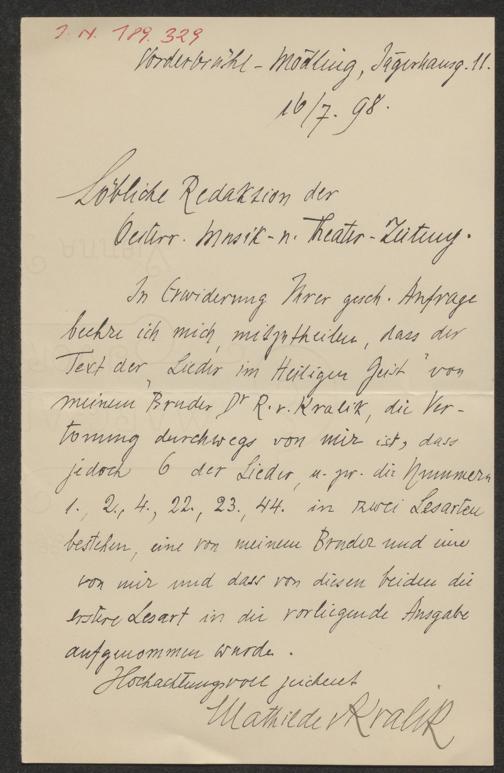 J. N. 189.329
Vorderbrühl - Mödling, Jägerhausg. 11.
16/7. 98.
Löbliche Redaktion der
Oesterr. Musik- u. Theater-Zeitung.
In Erwiderung Ihrer gesch. Anfrage
beehre ich mich, mitzutheilen, dass der
Text der „Lieder im Heiligen Geist" von
meinem Bruder Dr R. v. Kralik, die Ver-
tonung durchwegs von mir ist, dass
jedoch 6 der Lieder, u. zw. die Nummern
1., 2., 4., 22., 23., 44. in zwei Lesarten
bestehen, eine von meinem Bruder und eine
von mir und dass von diesen beiden die
erstere Lesart in die vorliegende Ausgabe
aufgenommen wurde.
Hochachtungsvoll zeichnet
Mathilde v Kralik